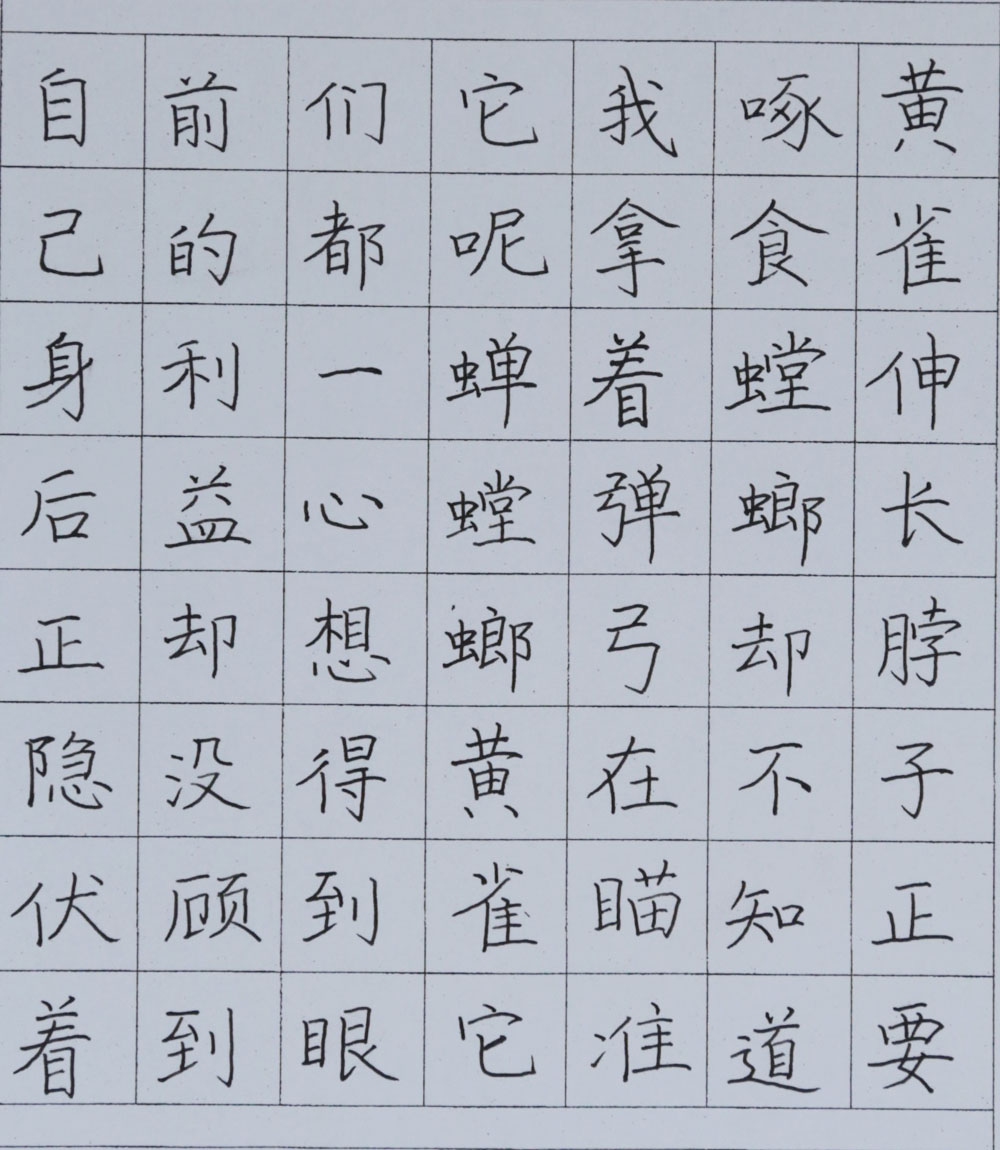 黄雀伸长脖子正要
啄食螳螂却不知道
我拿着弹弓在瞄准
它呢蝉螳螂黄雀它
们都一心想得到眼
前的利益却没顾到
自己身后正隐伏着